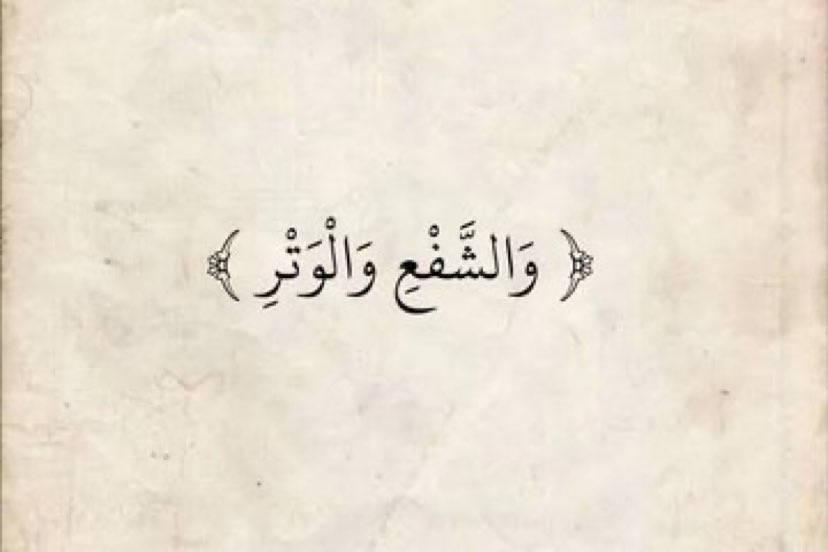 ﴿ وَالشَّفْعِ وَالْوَتْرِ ﴾